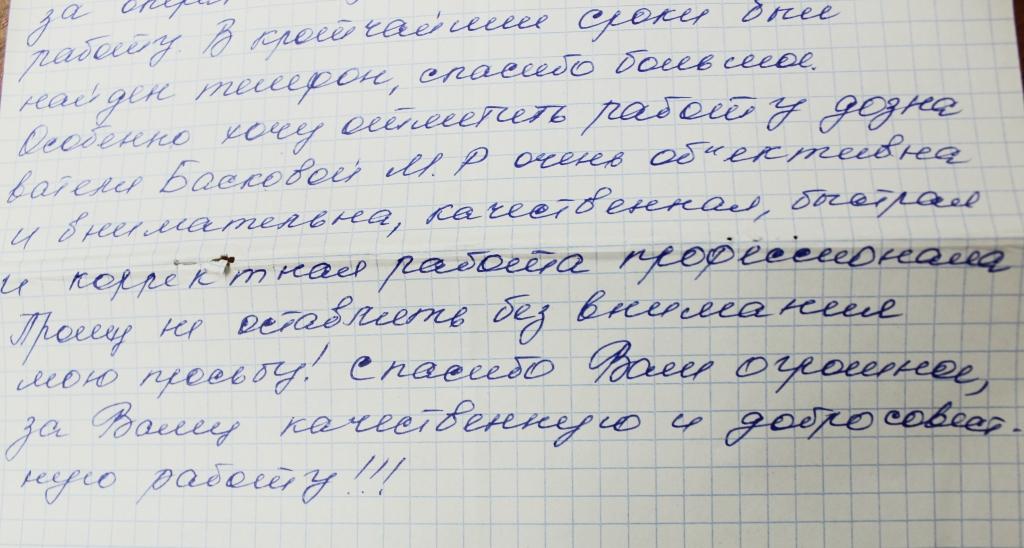 за опера
работу. В кротчайшии сроки был
найден телефон, спасибо большое.
Особенно хочу отметить работу дозна
вателя Басковой М. Р очень об"ективна
и внимательна, качественная, быстрая
и корректная работа профессионала
Прошу не оставлять без внимания
мою просьбу! Спасибо Вам огромное,
за Вашу качественную и добросовест-
ную работу!!!